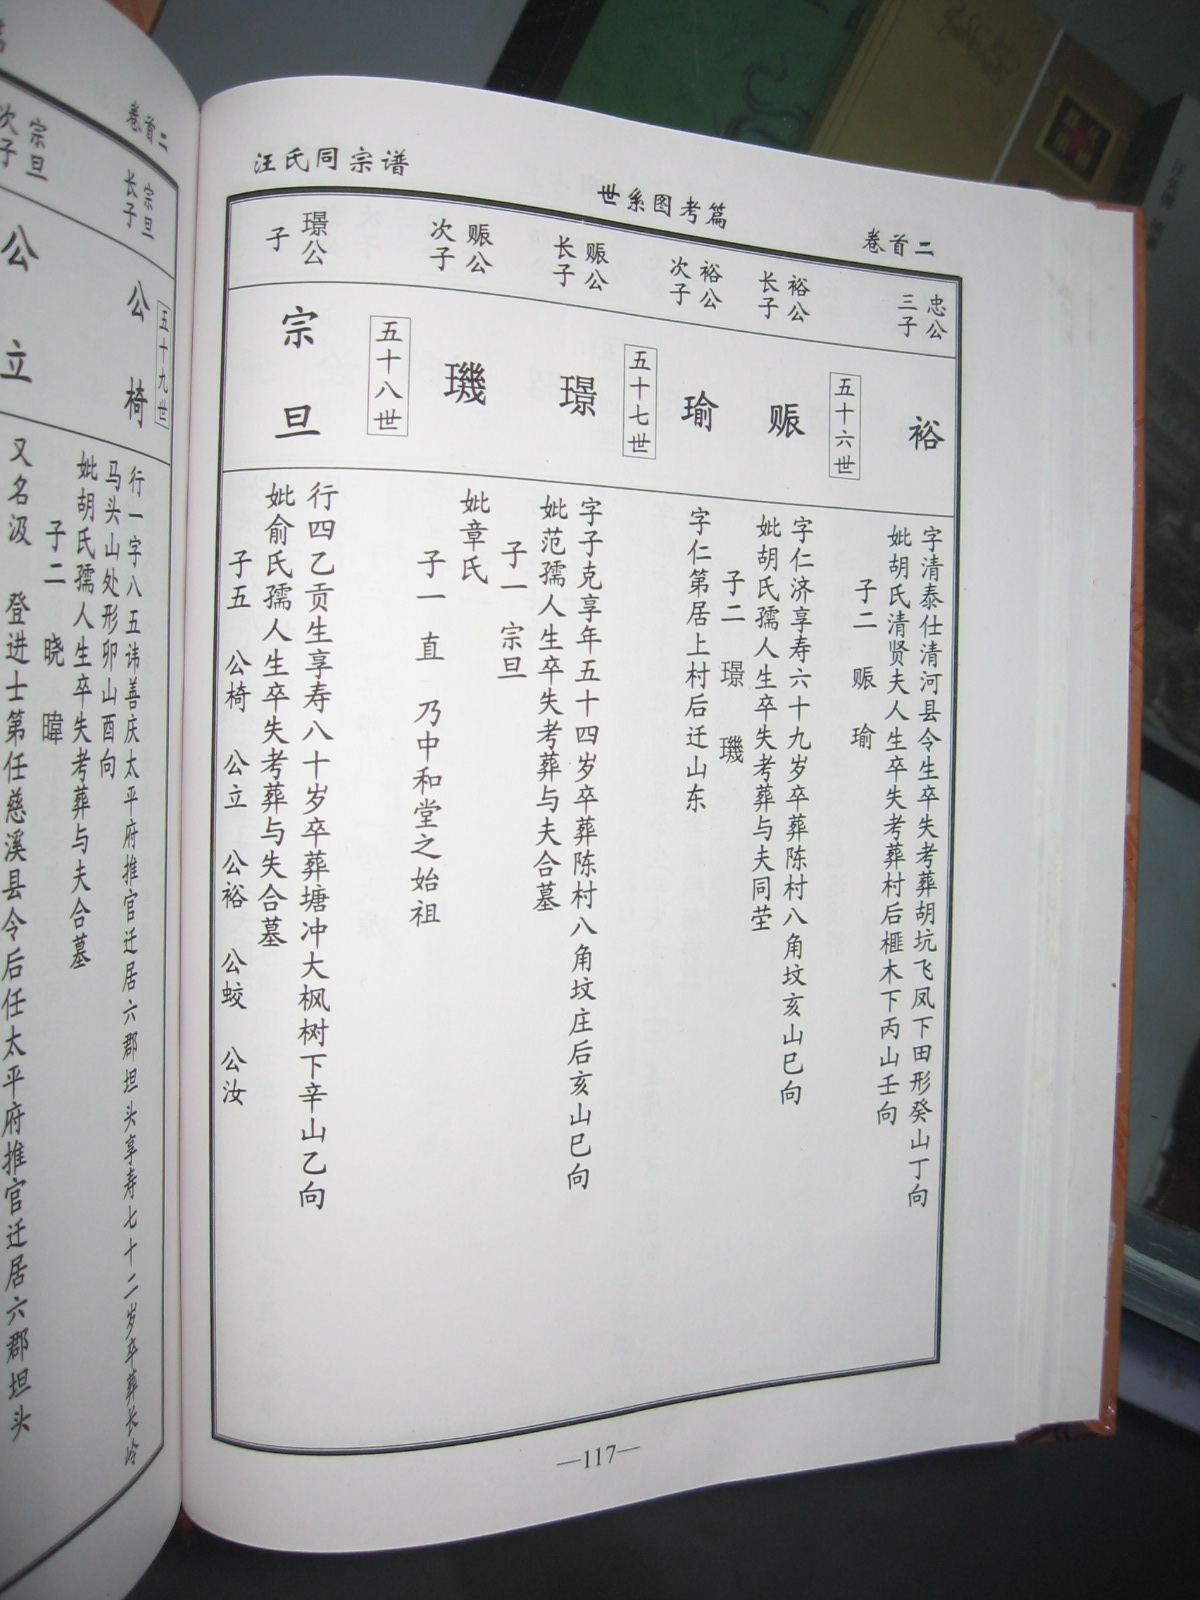 汪氏同宗谱
世系图考篇
卷首二
忠公
三子
裕
字清泰仕清河县令生卒失考葬胡坑飞凤下田形癸山丁向
妣胡氏清贤夫人生卒失考葬村后榧木下丙山壬向
子二 赈 瑜
五十六世
裕公
长子
赈
字仁济享寿六十九岁卒葬陈村八角坟亥山巳向
妣胡氏孺人生卒失考葬与夫同茔
子二 璟 璣
裕公
次子
瑜
字仁第居上村后迁山东
五十七世
赈公
长子
璟
字子克享年五十四岁卒葬陈村八角坟庄后亥山巳向
妣范孺人生卒失考葬与夫合墓
子一 宗旦
赈公
次子
璣
妣章氏
子一 直 乃中和堂之始祖
五十八世
璟公
子
宗旦
行四乙贡生享寿八十岁卒葬塘冲大枫树下辛山乙向
妣俞氏孺人生卒失考葬与失合墓
子五 公椅 公立 公裕 公蛟 公汝
—117—
卷首二
五十九世
宗旦
长子
公椅
行一字八五讳善庆太平府推官迁居六郡坦头享寿七十二岁卒葬长岭
马头山处形卯山酉向
妣胡氏孺人生卒失考葬与夫合墓
子二 晓 暐
宗旦
次子
公立
又名汲 登进士第任慈溪县令后任太平府推官迁居六郡坦头